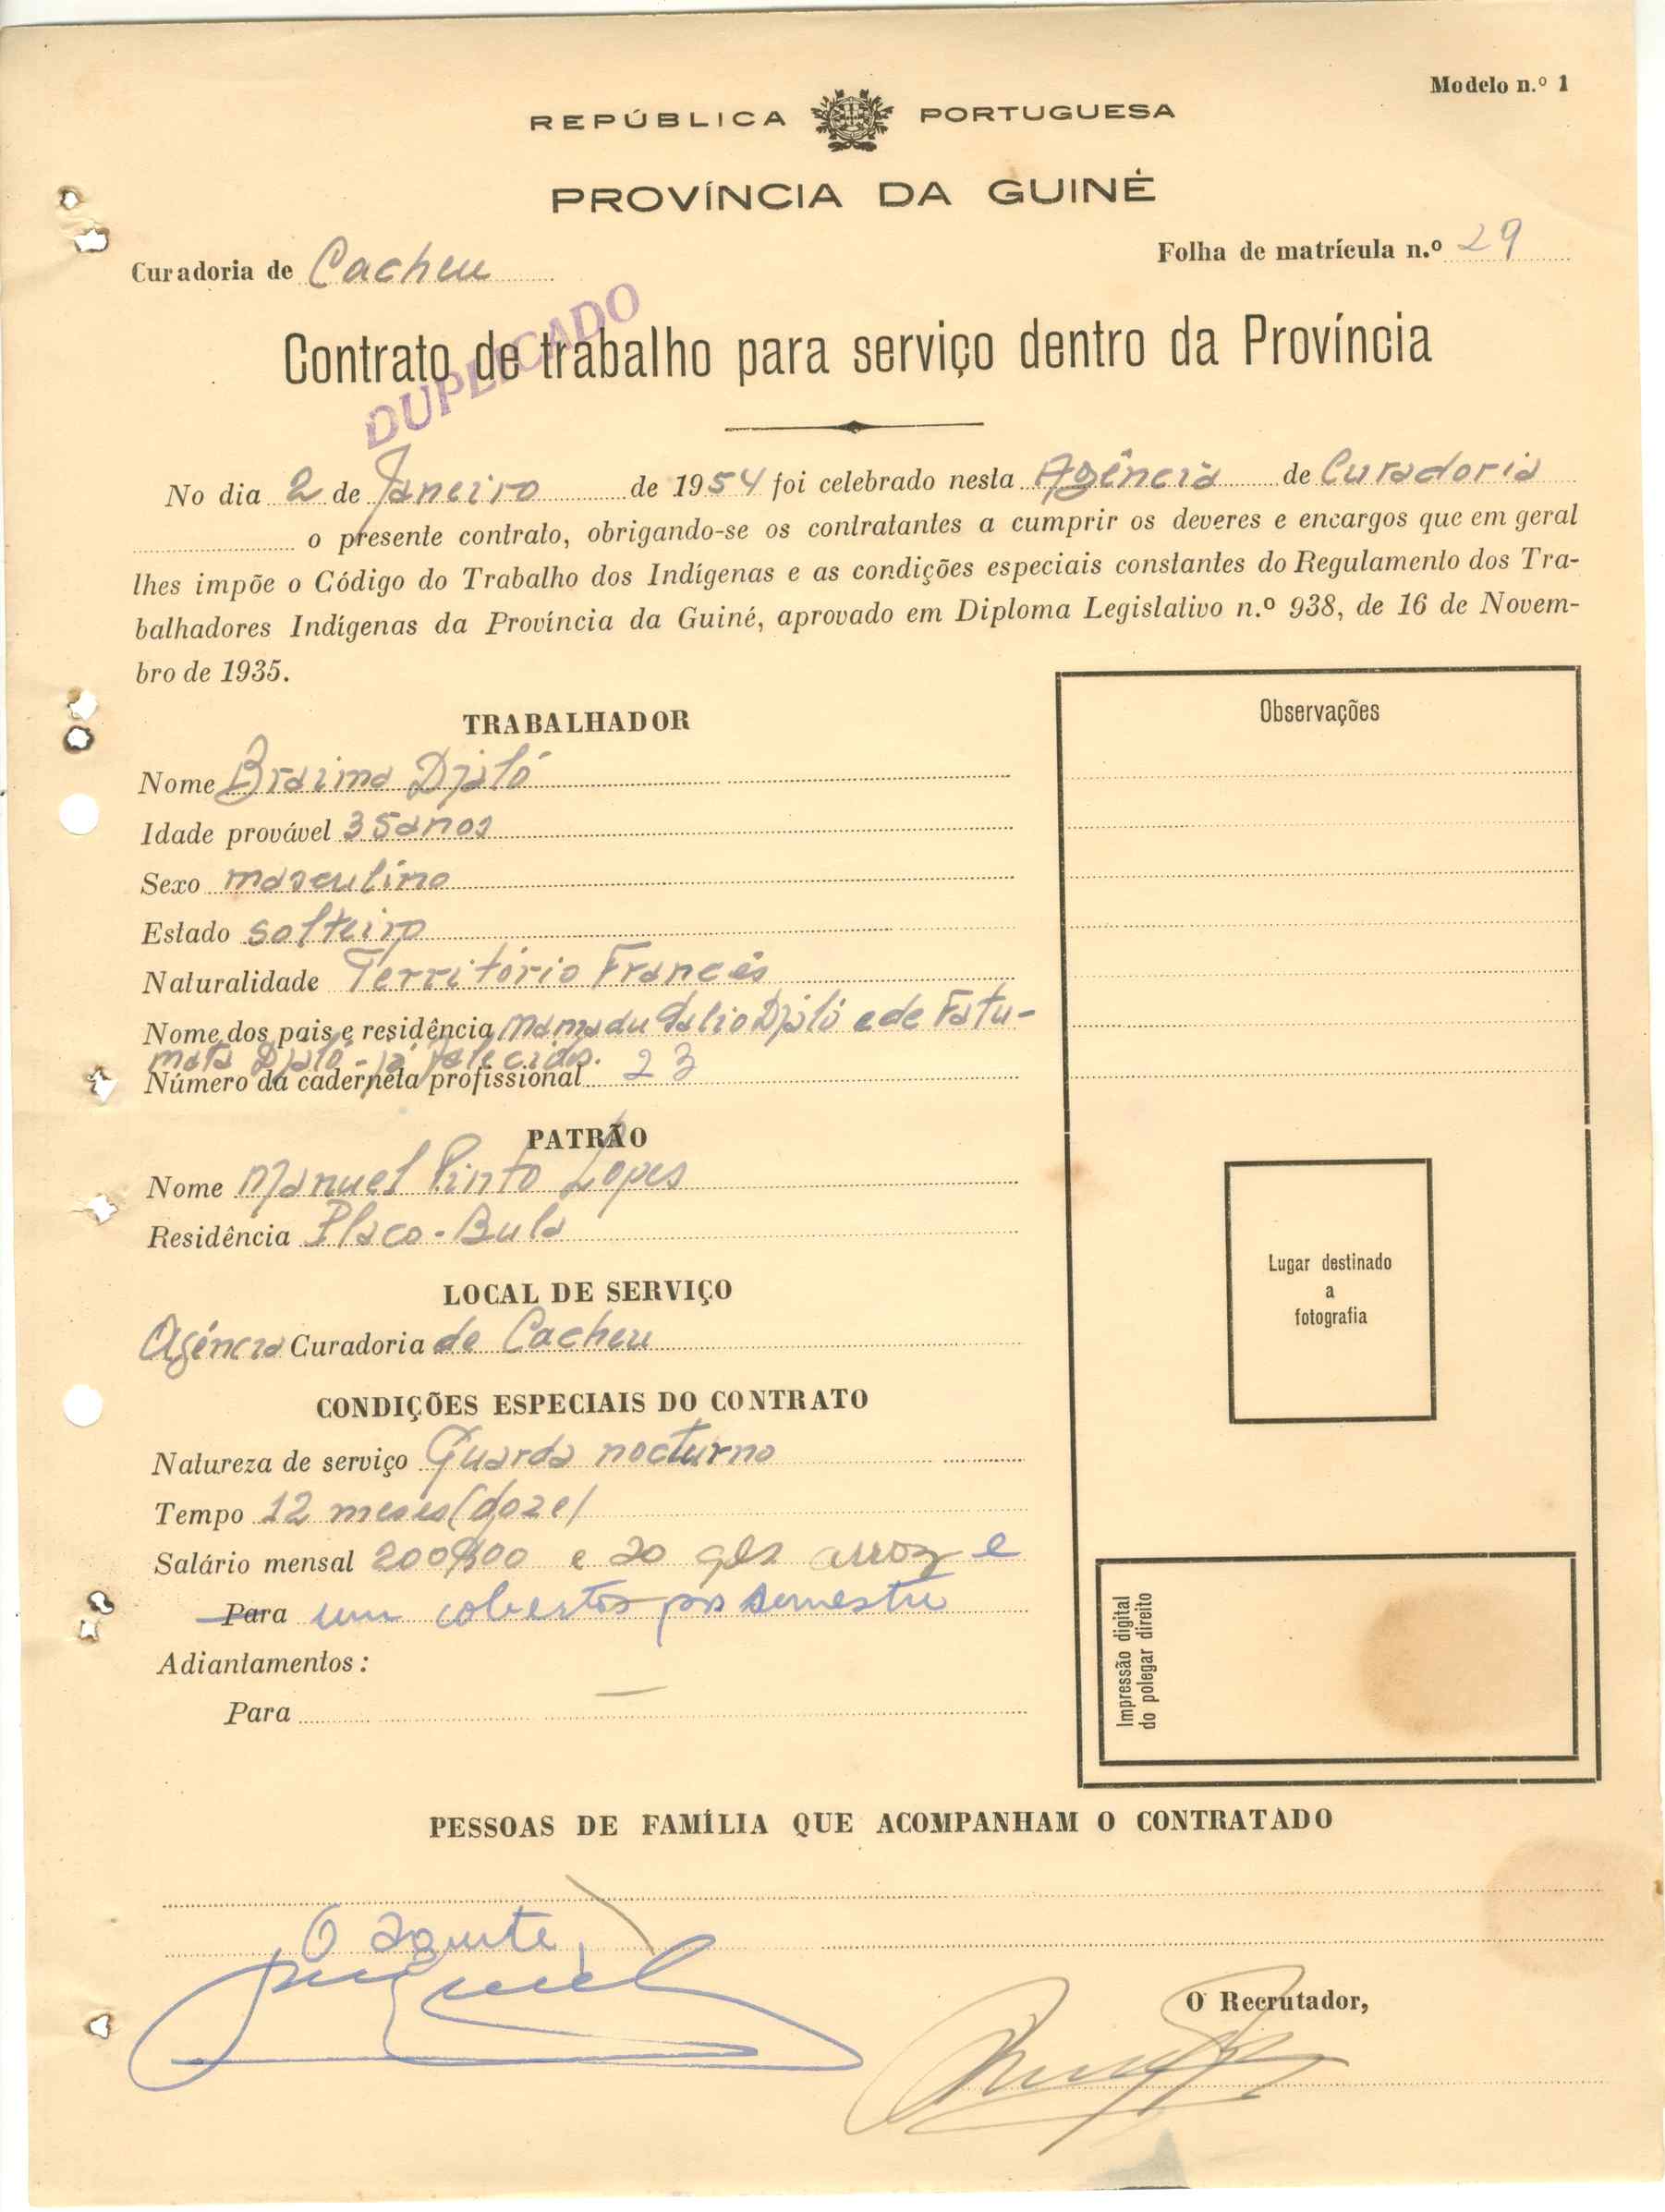 Modelo n.º 1
REPÚBLICA PORTUGUESA
PROVÍNCIA DA GUINÉ
Curadoria de Cacheu
Folha de matrícula n.º 29
DUPLICADO
Contrato de trabalho para serviço dentro da Província
No dia 2 de Janeiro de 1954 foi celebrado nesta Agência de Curadoria
o presente contrato, obrigando-se os contratantes a cumprir os deveres e encargos que em geral
lhes impõe o Código do Trabalho dos Indígenas e as condições especiais constantes do Regulamento dos Tra-
balhadores Indígenas da Província da Guiné, aprovado em Diploma Legislativo n.º 938, de 16 de Novem-
bro de 1935.
TRABALHADOR
Nome Braima Djaló
Idade provável 35 anos
Sexo masculino
Estado solteiro
Naturalidade Território Francês
Nome dos pais e residência Mamadu Djaló e de Fatu-
mata Djaló - já falecidos.
Número da caderneta profissional 23
PATRÃO
Nome Manuel Pinto Lopes
Residência Placo-Bula
LOCAL DE SERVIÇO
Agência Curadoria de Cacheu
CONDIÇÕES ESPECIAIS DO CONTRATO
Natureza de serviço Guarda nocturno
Tempo 12 meses (doze)
Salário mensal 200$00 e 20 arroz e
Para um cobertor por semestre
Adiantamentos:
Para —
Observações
Lugar destinado
a
fotografia
Impressão digital
do polegar direito
PESSOAS DE FAMÍLIA QUE ACOMPANHAM O CONTRATADO
O agente,
O Recrutador,